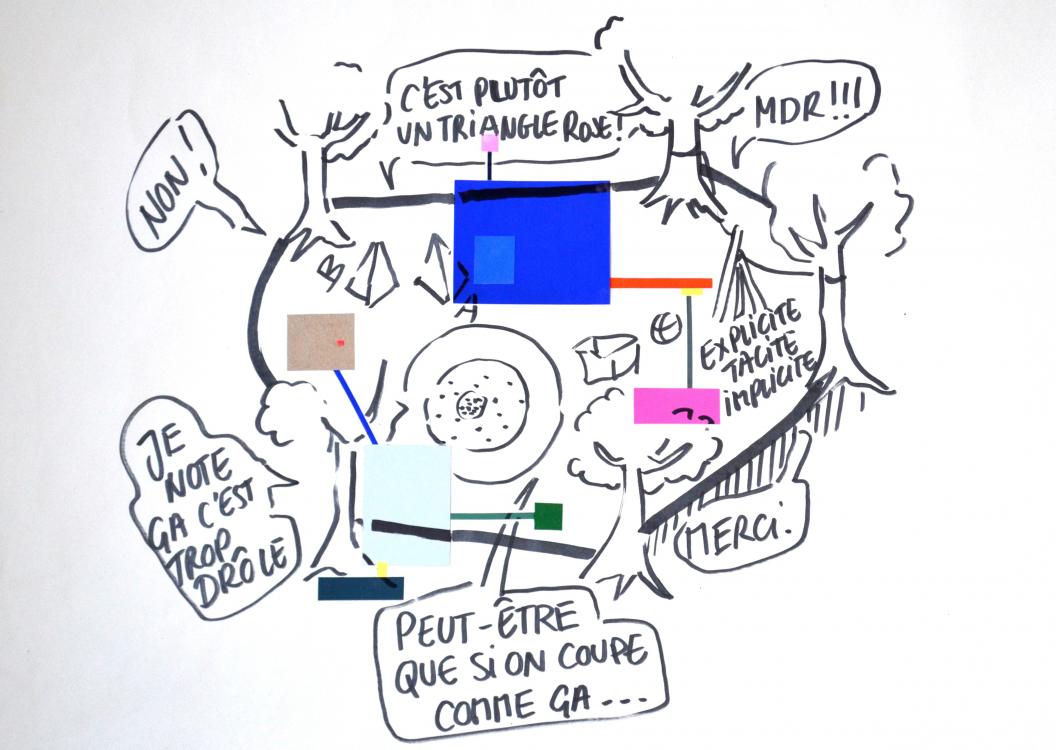 C'EST PLUTÔT
UN TRIANGLE ROSE!
MDR!!!
NON!
B
A
EXPLICITE
TACITE
IMPLICITE
JE
NOTE
GA C'EST
TROP
DRÔLE
MERCI.
PEUT-ÊTRE
QUE SI ON COUPE
COMME GA ...